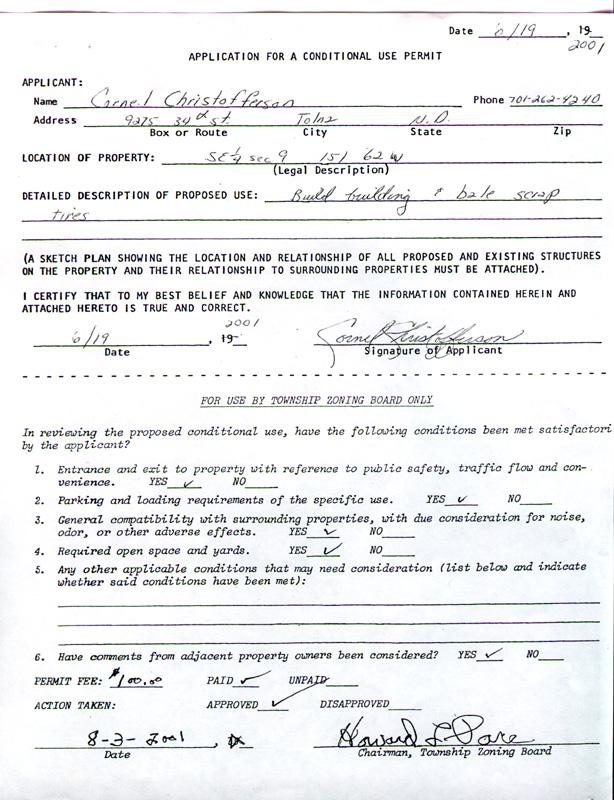 Date 6/19, 19
2001
APPLICATION FOR A CONDITIONAL USE PERMIT
APPLICANT:
Name Cornel Christofferson Phone 701-262-4240
Address 9275 34th St Tolna N.D.
Box or Route City State Zip
LOCATION OF PROPERTY: SE¼ sec 9 151 62 W
(Legal Description)
DETAILED DESCRIPTION OF PROPOSED USE: Build building & bale scrap
tires
(A SKETCH PLAN SHOWING THE LOCATION AND RELATIONSHIP OF ALL PROPOSED AND EXISTING STRUCTURES
ON THE PROPERTY AND THEIR RELATIONSHIP TO SURROUNDING PROPERTIES MUST BE ATTACHED).
I CERTIFY THAT TO MY BEST BELIEF AND KNOWLEDGE THAT THE INFORMATION CONTAINED HEREIN AND
ATTACHED HERETO IS TRUE AND CORRECT.
2001
6/19, 19 Cornel Christofferson
Date Signature of Applicant
FOR USE BY TOWNSHIP ZONING BOARD ONLY
In reviewing the proposed conditional use, have the following conditions been met satisfactori
by the applicant?
1. Entrance and exit to property with reference to public safety, traffic flow and con-
venience. YES ✓ NO
2. Parking and loading requirements of the specific use. YES ✓ NO
3. General compatibility with surrounding properties, with due consideration for noise,
odor, or other adverse effects. YES ✓ NO
4. Required open space and yards. YES ✓ NO
5. Any other applicable conditions that may need consideration (list below and indicate
whether said conditions have been met):
6. Have comments from adjacent property owners been considered? YES ✓ NO
PERMIT FEE: $100.00 PAID ✓ UNPAID
ACTION TAKEN: APPROVED ✓ DISAPPROVED
8-3-2001, Howard L. Pare
Date Chairman, Township Zoning Board